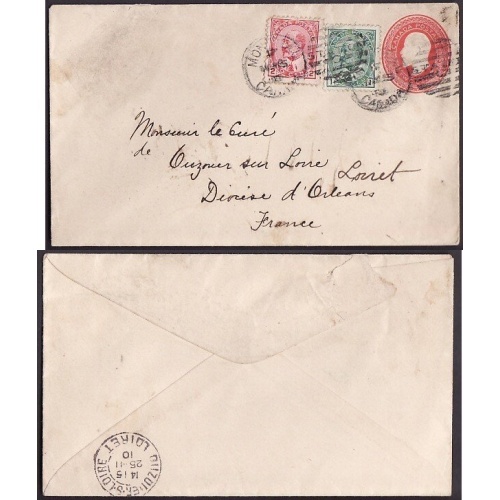 MON
CANADA
CANADA
Monsieur le Curé
de Ouzouer sur Loire
Loiret
Diocèse d'Orléans
France
OUZOUER-S-LOIRE
14 15
25-11
10
LOIRET